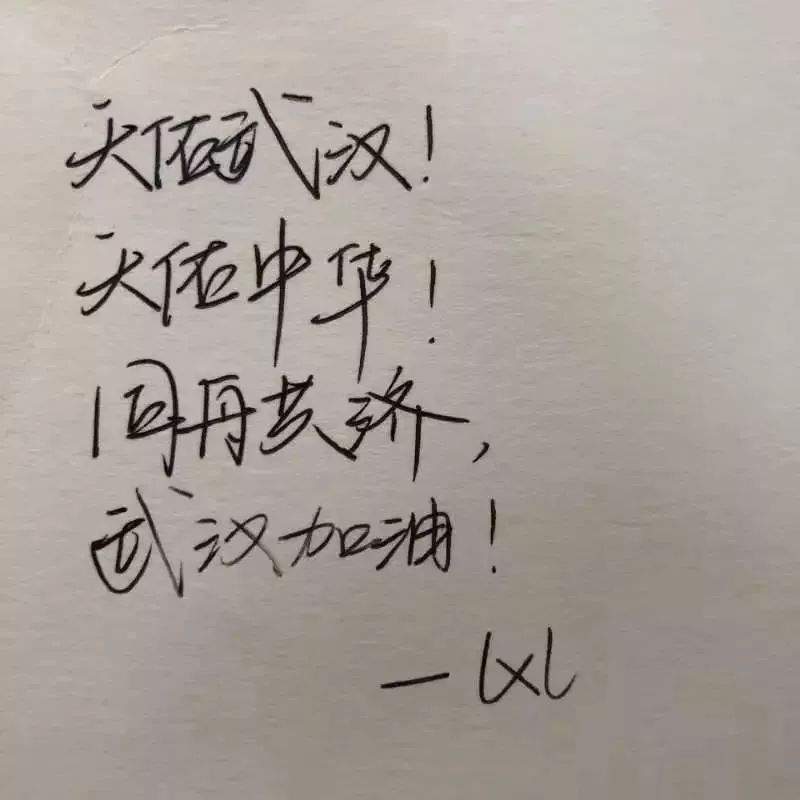 天佑武汉！
天佑中华！
同舟共济，
武汉加油！
— LXL